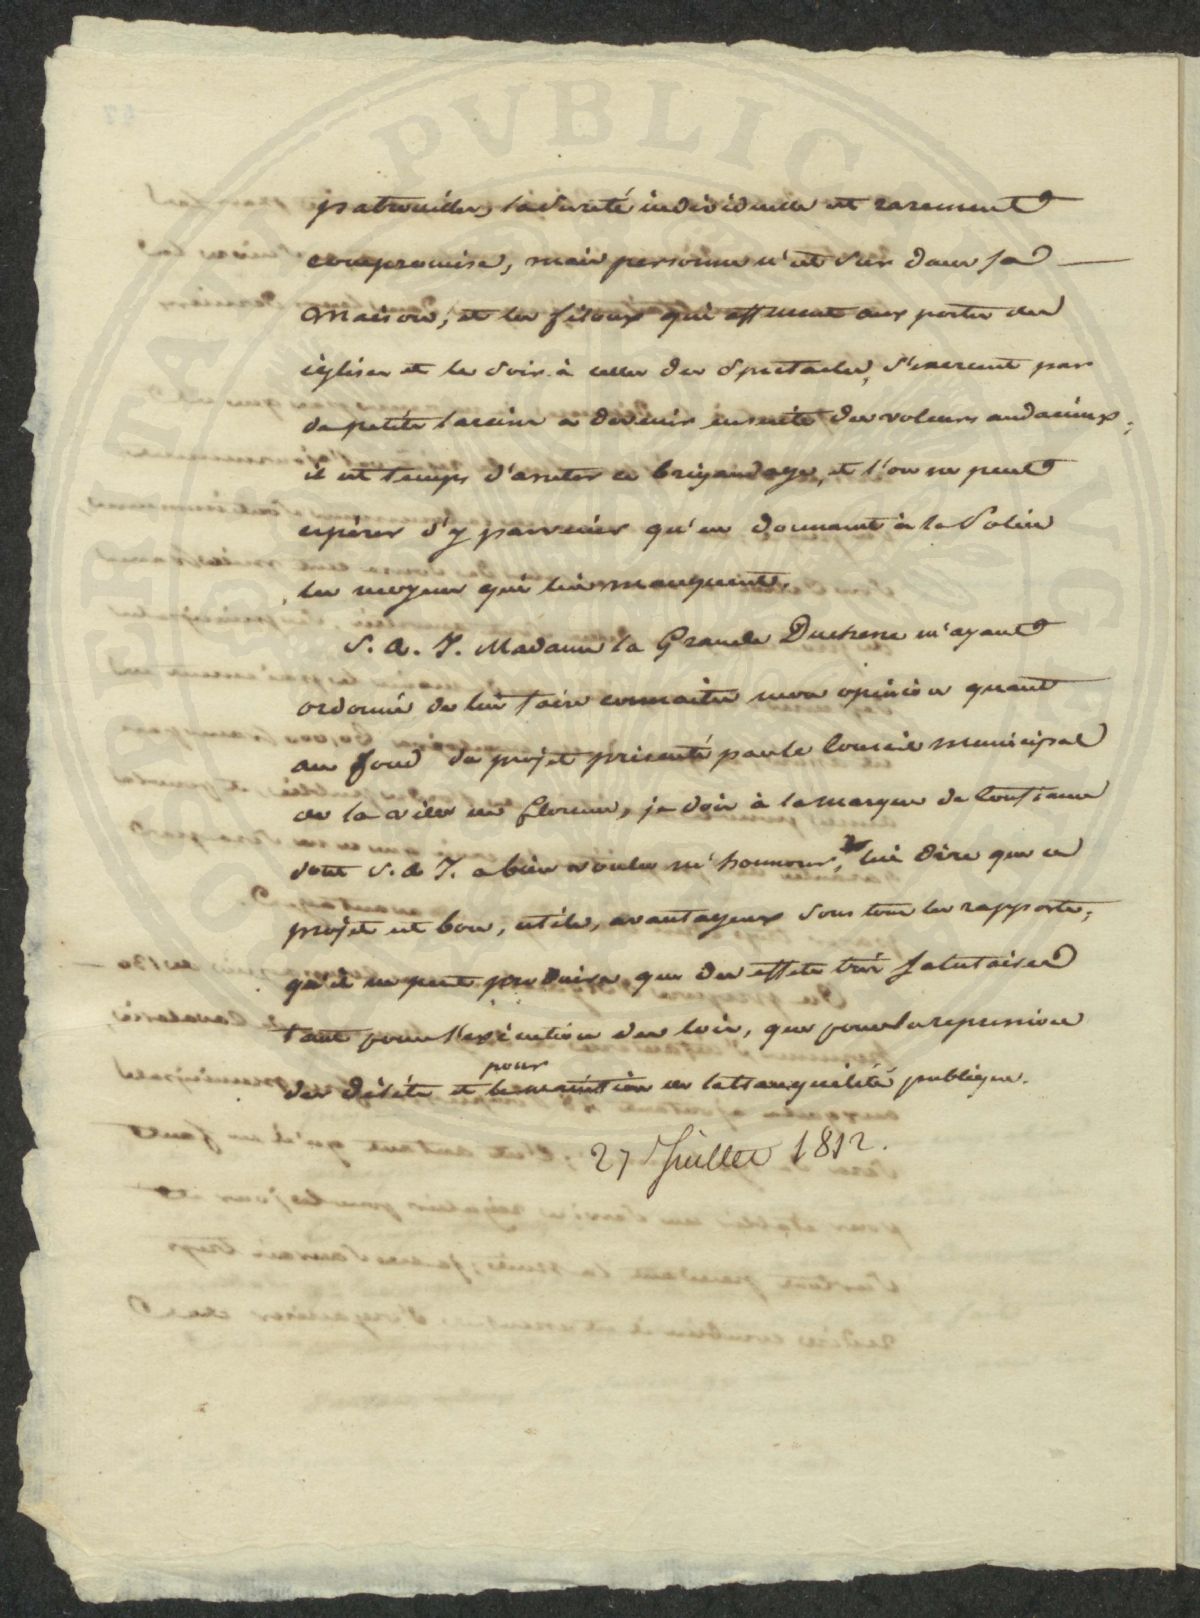 patrouilles, la sureté individuelle est rarement
compromise, mais personne n'est sur dans sa
maison; et les filoux qui affluent aux portes des
églises et le soir à celles des Spectacles, s'exercent par
de petits larcins a devenir ensuite des voleurs audacieux;
il est temps d'arreter ce brigandage, et l'on ne peut
espérer d'y parvenir qu'en donnant à la Police
les moyens qui lui manquent.
S. A. I. Madame la Grande Duchesse m'ayant
ordonné de lui faire connaitre mon opinion quant
au fond du projet présenté par le Conseil municipal
de la ville de Florence, je dois à la marque de Confiance
dont S. A. I. a bien voulu m'honnorer, lui dire que ce
projet est bon, utile, avantageux sous tous les rapports;
qu'il ne peut produire que des effets très salutaires
tant pour l'exécution des loix, que pour la repression
pour
des délits et le maintien de la tranquilité publique.
27 Juillet 1812.
PUBLIC